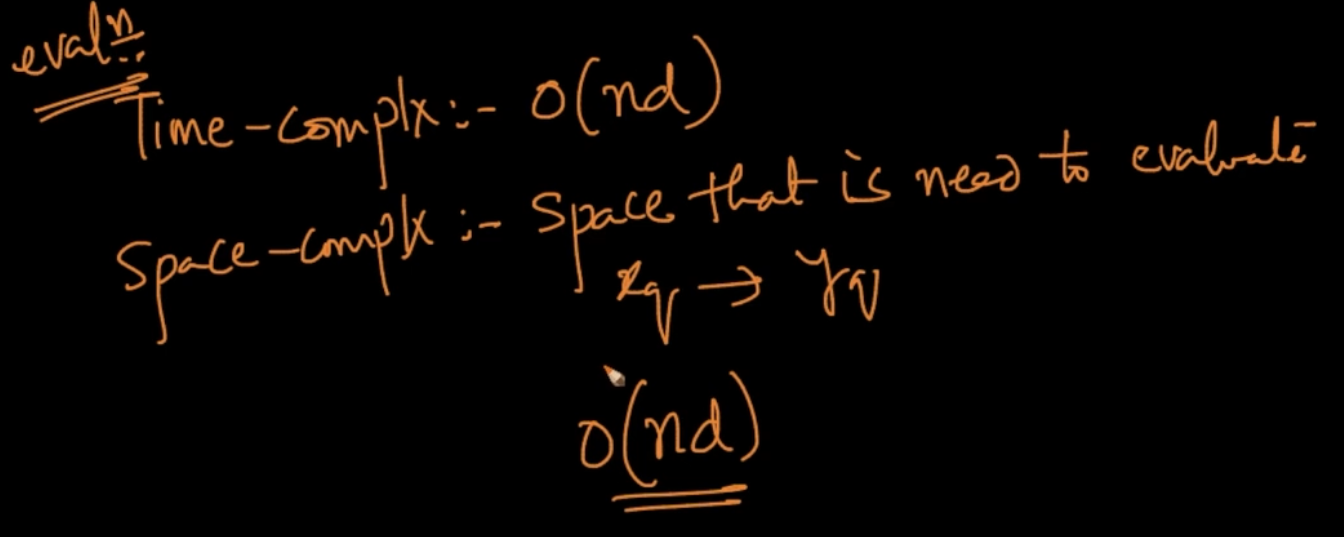 evalⁿ:
Time-complx:- O(nd)
Space-complx:- Space that is need to evaluate
xq → yq
O(nd)